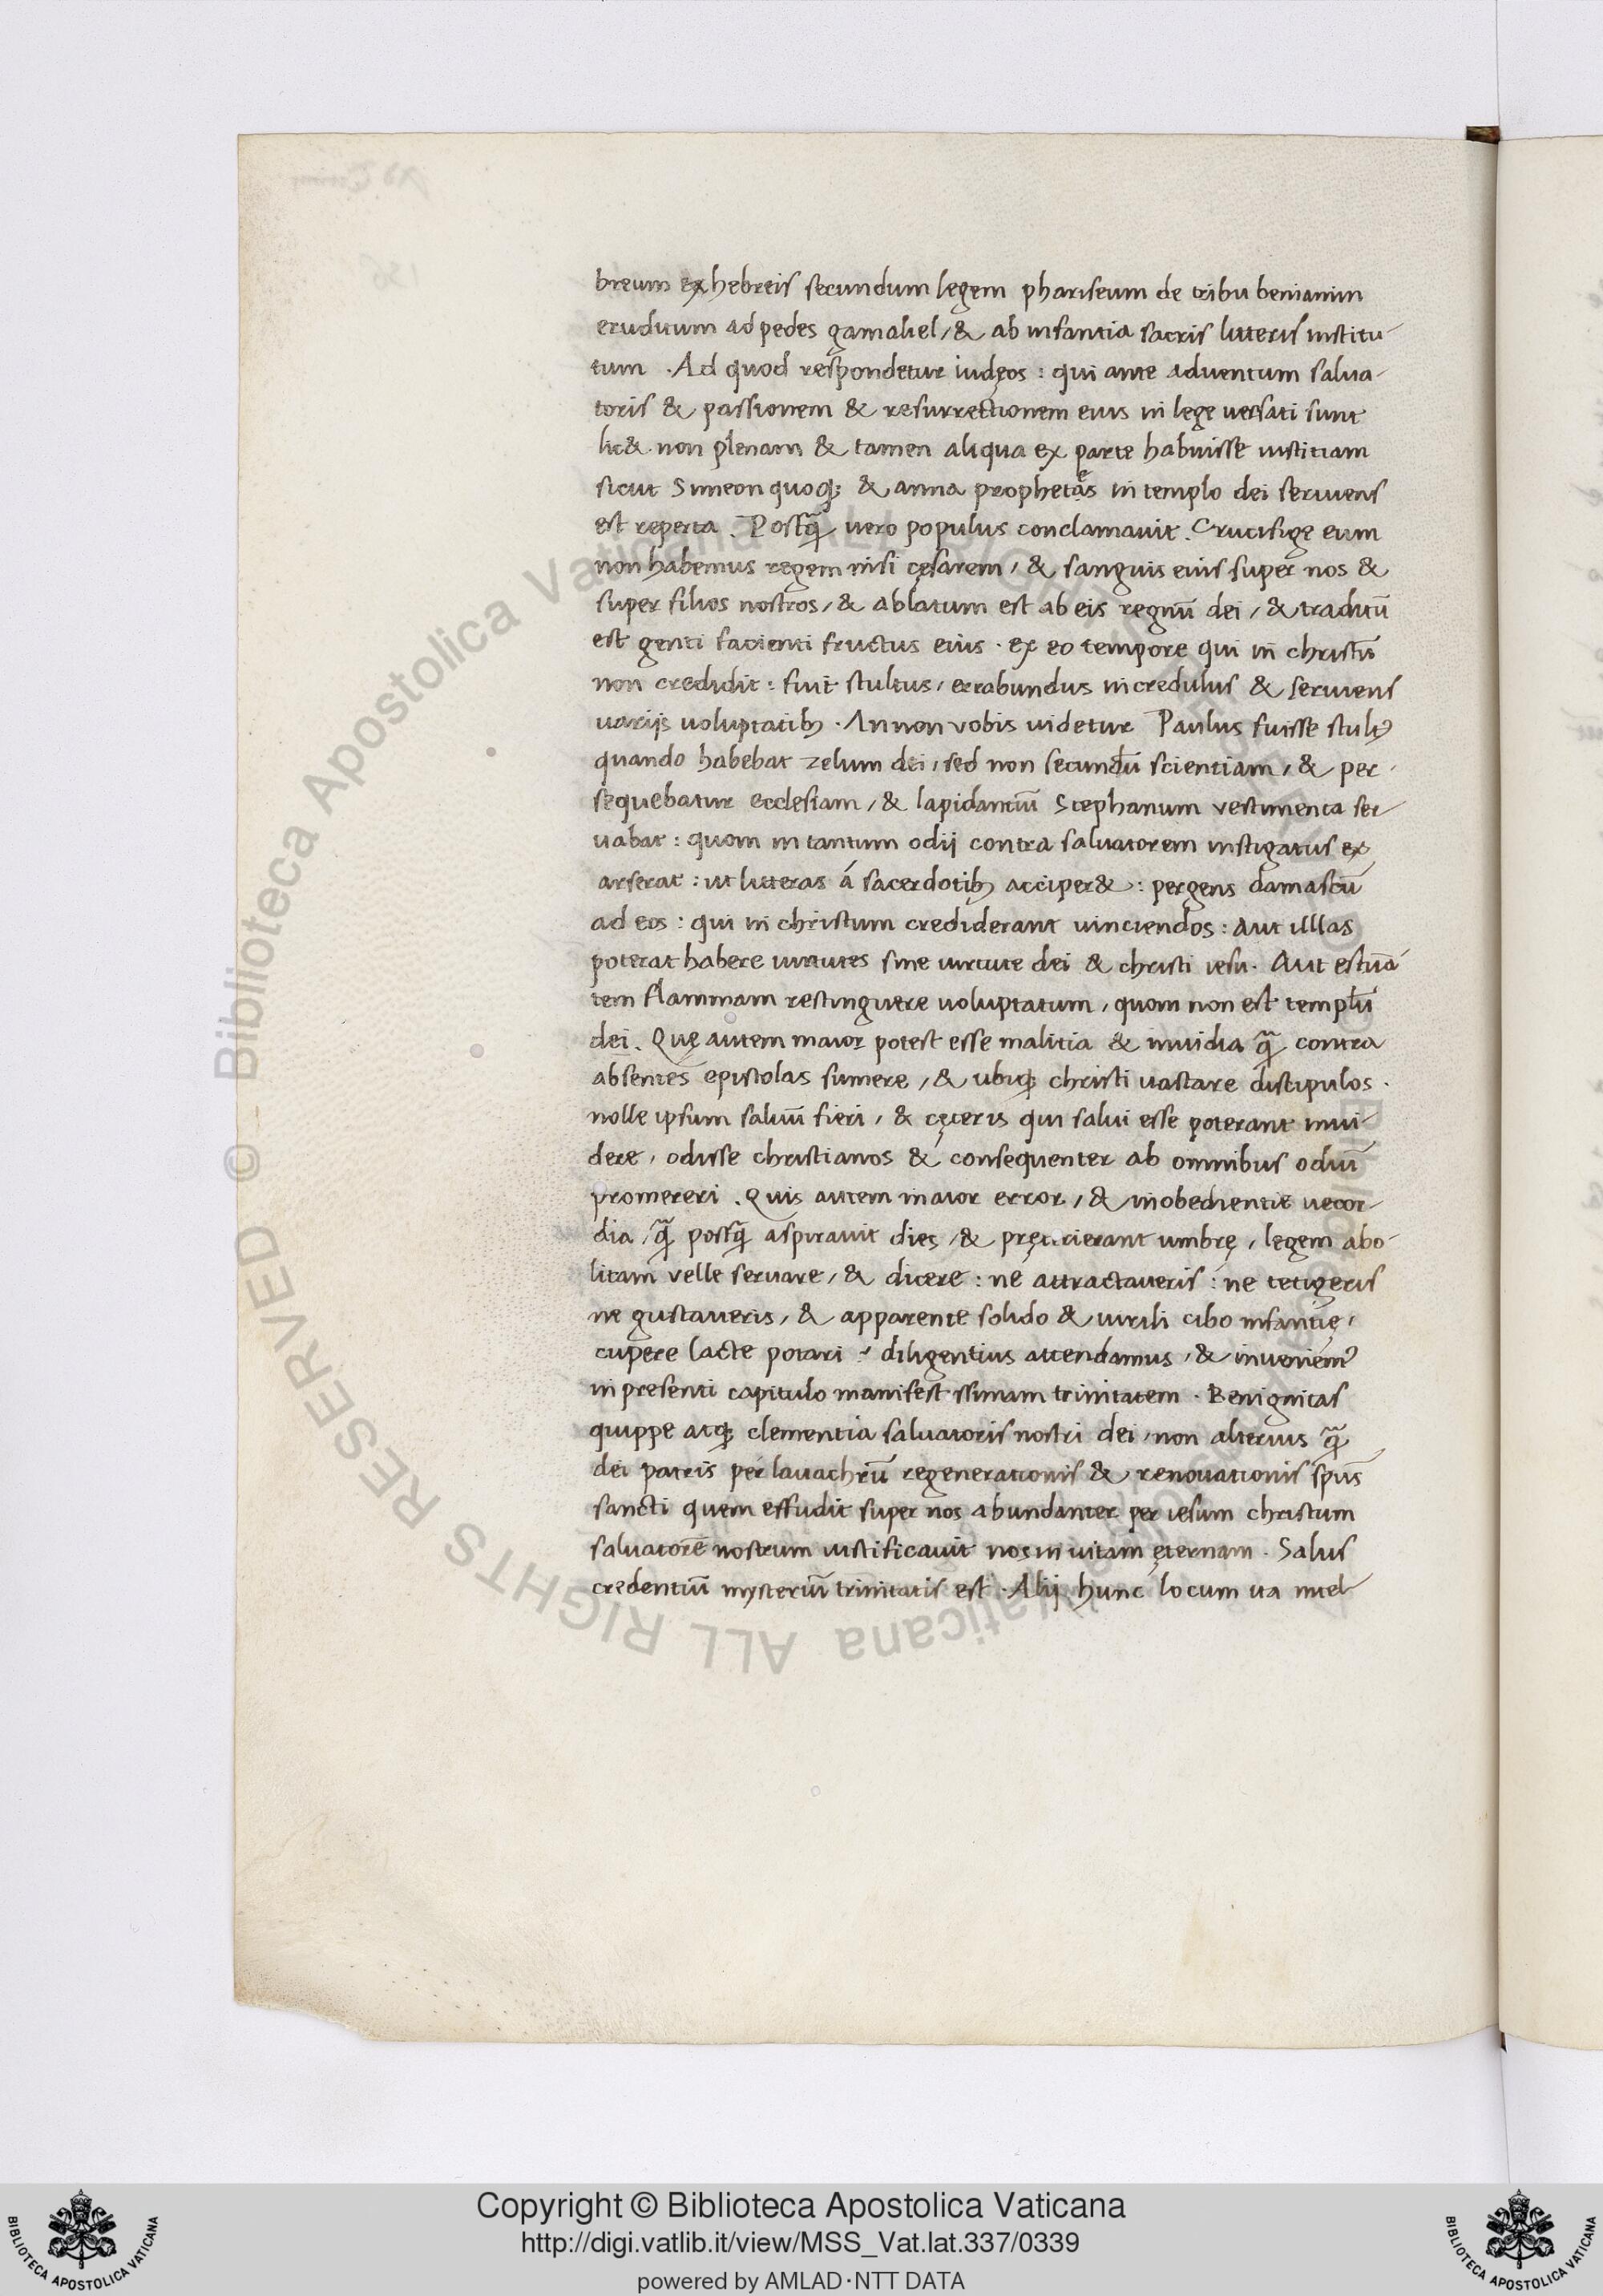 breum ex hebreis secundum legem phariseum de tribu beniamin
eruditum ad pedes gamaliel, & ab infantia sacris litteris institu-
tum . Ad quod respondetur iudęos : qui ante aduentum salua-
toris & passionem & resurrectionem eius in lege uersati sunt
lic& non plenam & tamen aliqua ex parte habuisse iustitiam
sicut Simeon quoq; & anna in templo dei seruiens
est reperta . Postq̃ uero populus conclamauit . Crucifige eum
non habemus regem nisi cęsarem, & sanguis eius super nos &
super filios nostros, & ablatum est ab eis regnū dei, & traditū
est genti facienti fructus eius . ex eo tempore qui in christū
non credidit : fuit stultus, errabundus incredulus & seruiens
uarijs uoluptatib; . An non vobis uidetur Paulus fuisse stult9
quando habebat zelum dei, sed non secundū scientiam, & per-
sequebatur ecclesiam, & lapidantiū Stephanum vestimenta ser-
uabat : quom in tantum odij contra saluatorem instigatus ex
arserat : ut litteras á sacerdotib; acciper& : pergens damascū
ad eos : qui in christum crediderant uinciendos : Aut illlas
poterat habere uirtutes sine uirtute dei & christi iesu . Aut estuā-
tem flammam restinguere uoluptatum, quom non est templū
dei . Quę autem maior potest esse malitia & inuidia q̃ contra
absentes epistolas sumere, & ubiq; christi uastare discipulos .
nolle ipsum saluū fieri, & cęteris qui salui esse poterant inui-
dere, odisse christianos & consequenter ab omnibus odiū
promereri . Quis autem maior error, & inobedientie uecor-
dia, q̃ postq̃ aspirauit dies, & umbrę, legem abo-
litam velle seruare, & dicere : ne attractaueris : ne tetigeris
ne gustaueris, & apparente solido & uirili cibo infantię,
cupere lacte potari ? diligentius attendamus, & inueniem9
in presenti capitulo manifest ssimam trinitatem . Benignitas
quippe atq; clementia saluatoris nostri dei, non alterius q̃
dei patris per lauachrū regenerationis & renouationis spūs
sancti quem effudit super nos abundanter per iesum christum
saluatorē nostrum iustificauit nos in uitam ęternam . Salus
credentiū mysteriū trinitatis est . Alij hunc locum ita intel-
Copyright © Biblioteca Apostolica Vaticana
http://digi.vatlib.it/view/MSS_Vat.lat.337/0339
powered by AMLAD·NTT DATA
BIBLIOTECA APOSTOLICA VATICANA
BIBLIOTECA APOSTOLICA VATICANA
© Biblioteca Apostolica Vaticana ALL RIGHTS RESERVED